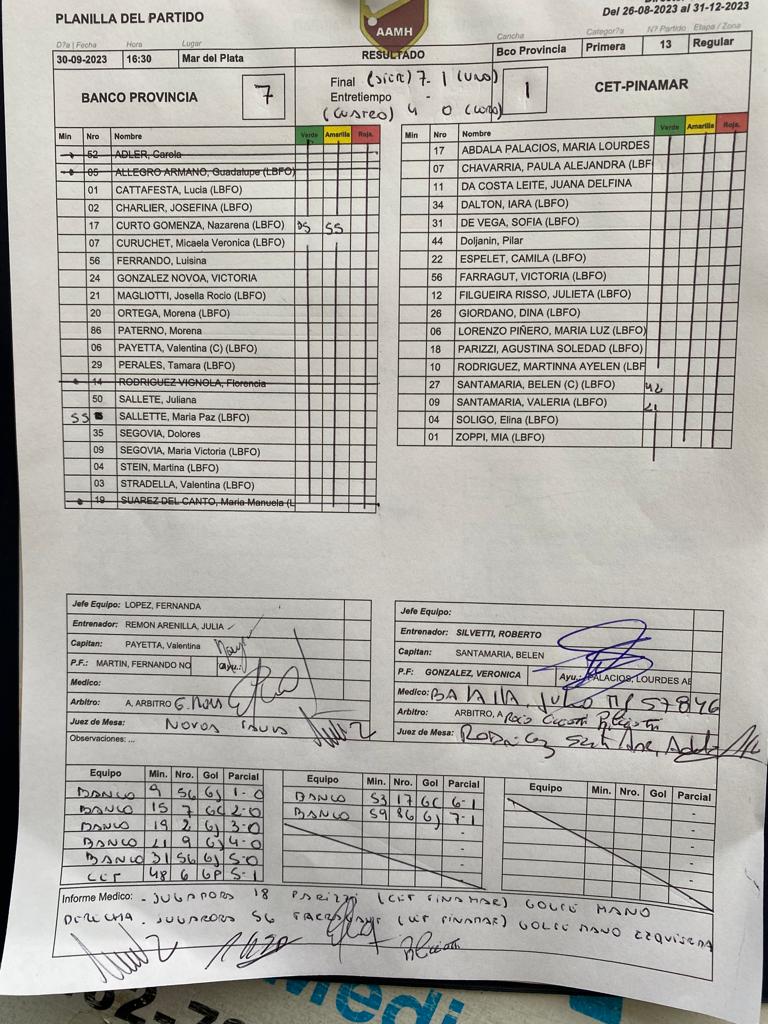 PLANILLA DEL PARTIDO
AAMH
Del 26-08-2023 al 31-12-2023
D?a | Fecha Hora Lugar Cancha Categor?a N? Partido Etapa / Zona
30-09-2023 16:30 Mar del Plata RESULTADO Bco Provincia Primera 13 Regular
BANCO PROVINCIA 7 Final (SIETE) 7-1 (UNO) 1 CET-PINAMAR
Entretiempo -
(CUATRO) 4 0 (CERO)
Min Nro Nombre Verde Amarilla Roja
52 ADLER, Carola
05 ALLEGRO ARMANO, Guadalupe (LBFO)
01 CATTAFESTA, Lucia (LBFO)
02 CHARLIER, JOSEFINA (LBFO)
17 CURTO GOMENZA, Nazarena (LBFO) 55
07 CURUCHET, Micaela Veronica (LBFO)
56 FERRANDO, Luisina
24 GONZALEZ NOVOA, VICTORIA
21 MAGLIOTTI, Josella Rocio (LBFO)
20 ORTEGA, Morena (LBFO)
86 PATERNO, Morena
06 PAYETTA, Valentina (C) (LBFO)
29 PERALES, Tamara (LBFO)
14 RODRIGUEZ VIGNOLA, Florencia
50 SALLETE, Juliana
55 SALLETTE, Maria Paz (LBFO)
35 SEGOVIA, Dolores
09 SEGOVIA, Maria Victoria (LBFO)
04 STEIN, Martina (LBFO)
03 STRADELLA, Valentina (LBFO)
19 SUAREZ DEL CANTO, Maria Manuela (L
Min Nro Nombre Verde Amarilla Roja
17 ABDALA PALACIOS, MARIA LOURDES
07 CHAVARRIA, PAULA ALEJANDRA (LBF
11 DA COSTA LEITE, JUANA DELFINA
34 DALTON, IARA (LBFO)
31 DE VEGA, SOFIA (LBFO)
44 Doljanin, Pilar
22 ESPELET, CAMILA (LBFO)
56 FARRAGUT, VICTORIA (LBFO)
12 FILGUEIRA RISSO, JULIETA (LBFO)
26 GIORDANO, DINA (LBFO)
06 LORENZO PIÑERO, MARIA LUZ (LBFO)
18 PARIZZI, AGUSTINA SOLEDAD (LBFO)
10 RODRIGUEZ, MARTINNA AYELEN (LBF
27 SANTAMARIA, BELEN (C) (LBFO) 42
09 SANTAMARIA, VALERIA (LBFO) 21
04 SOLIGO, Elina (LBFO)
01 ZOPPI, MIA (LBFO)
Jefe Equipo: LOPEZ, FERNANDA
Entrenador: REMON ARENILLA, JULIA
Capitan: PAYETTA, Valentina
P.F.: MARTIN, FERNANDO NO Ayu.:
Medico:
Arbitro: A, ARBITRO
Juez de Mesa:
Observaciones: ...
Jefe Equipo:
Entrenador: SILVETTI, ROBERTO
Capitan: SANTAMARIA, BELEN
P.F: GONZALEZ, VERONICA Ayu.: PALACIOS, LOURDES AB
Medico: JULIO MP 57846
Arbitro: ARBITRO, A
Juez de Mesa:
Equipo Min. Nro. Gol Parcial
BANCO 9 56 GJ 1-0
BANCO 15 7 GC 2-0
BANCO 19 2 GJ 3-0
BANCO 21 9 GJ 4-0
BANCO 31 56 GJ 5-0
CET 48 6 GP 5-1
Equipo Min. Nro. Gol Parcial
BANCO 53 17 GC 6-1
BANCO 59 86 GJ 7-1
Equipo Min. Nro. Gol Parcial
Informe Medico: - JUGADORA 18 PARIZZI (CET PINAMAR) GOLPE MANO
DERECHA. JUGADORA 56 FARRAGUT (CET PINAMAR) GOLPE MANO IZQUIERDA